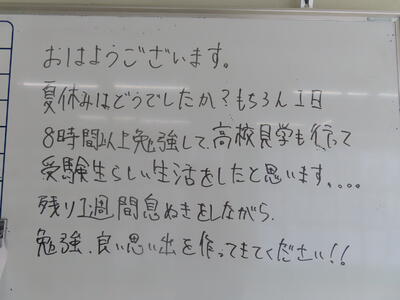 おはようございます。
夏休みはどうでしたか?もちろん1日
8時間以上勉強して、高校見学も行って
受験生らしい生活をしたと思います....
残り1週間息ぬきをしながら、
勉強、良い思い出を作ってきてください!!